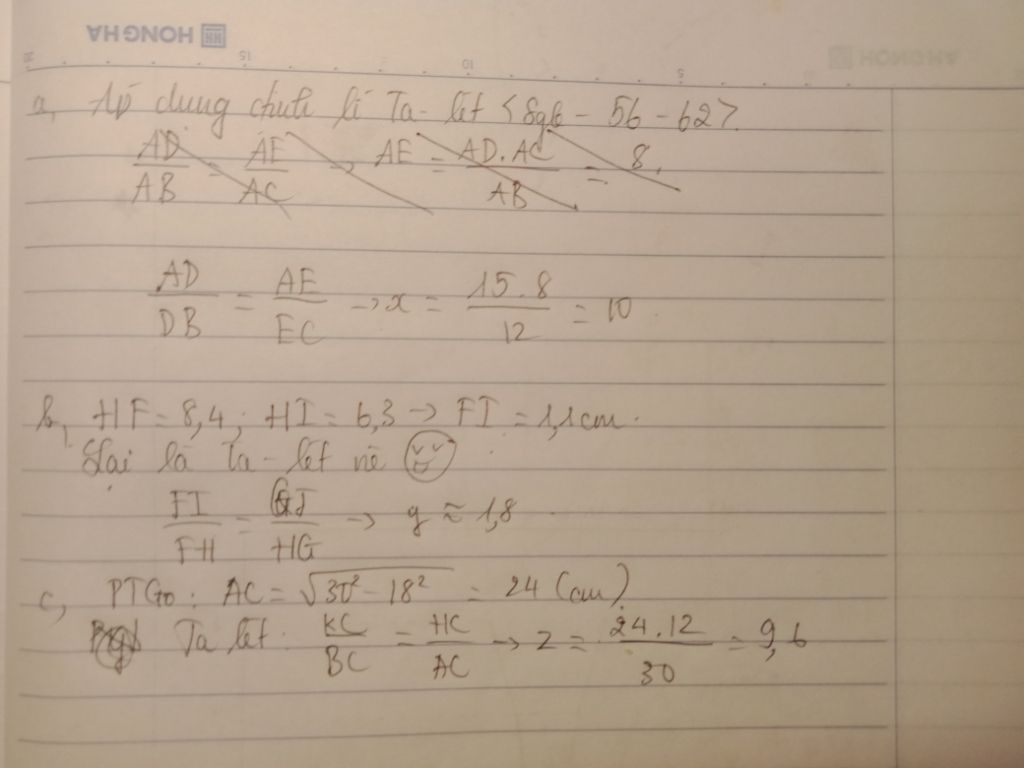 HONG HA
20 15 10 5
HONG HA
a, Áp dung định lí Ta-lét <Sgk - 56 - 62>
AD/AB = AE/AC → AE = AD.AC/AB = 8.
AD/DB = AE/EC → x = 15.8/12 = 10.
b, HF = 8,4 ; HI = 6,3 → FI = 1,1cm.
Lại là Ta-lét nè
FI/FH = GJ/HG → y ≈ 1,8
c, PTGo: AC = √30² - 18² = 24 (cm)
Ta lét: KC/BC = HC/AC → z = 24.12/30 = 9,6